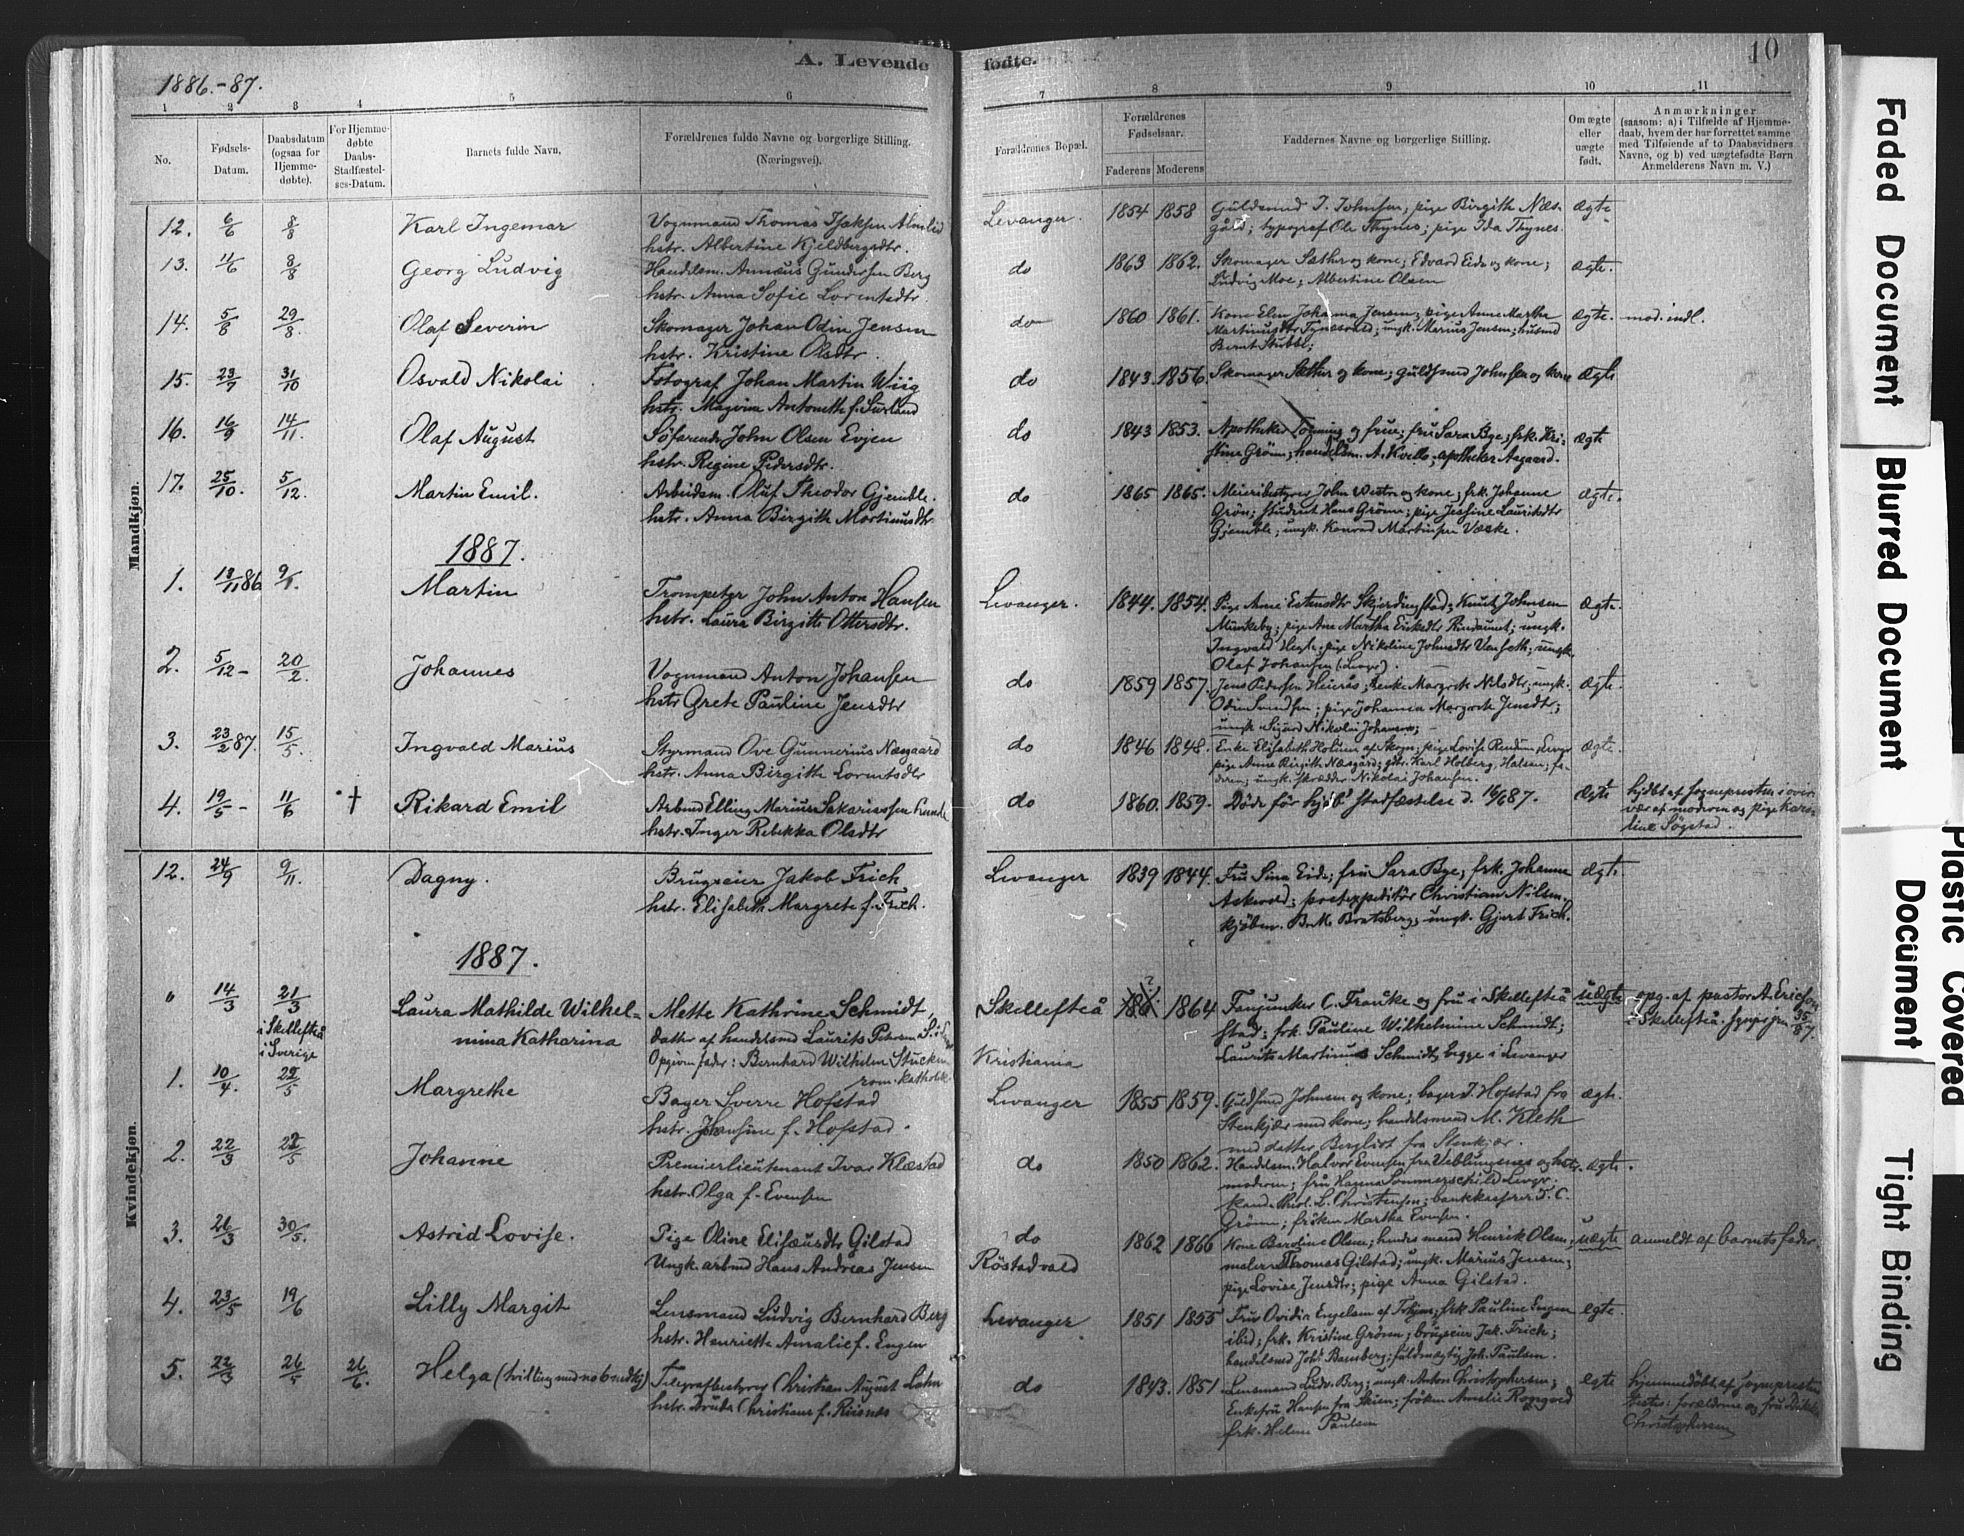 1886.-87.
A. Levende
fødte.
10
1 2 3 4 5 6
7 8 9 10 11
No.
Fødsels-
Datum.
Daabsdatum
(ogsaa for
Hjemme-
døbte).
For Hjemme-
døbte
Daabs-
Stadfæstel-
ses-Datum.
Barnets fulde Navn.
Forældrenes fulde Navne og borgerlige Stilling.
(Næringsvei).
Forældrenes Bopæl.
Forældrenes
Fødselsaar.
Faderens Moderens
Faddernes Navne og borgerlige Stilling.
Om ægte
eller
uægte
født.
Anmærkninger
(saasom: a) i Tilfælde af Hjemme-
daab, hvem der har forrettet samme
med Tilføiende af to Daabsvidners
Navne, og b) ved uægtefødte Børn
Anmelderens Navn m. V.)
Mandkjøn.
12. 6/6 8/8 Karl Ingemar
Vognmand Thomas Isaksen Almlid
hstr. Albertine Kjeldbergsdtr.
Levanger. 1854 1858
Guldsmed J. Johnsen; pige Birgith Næs-
gård; typograf Ole Thynes; pige Ida Thynes.
Ægte
13. 11/6 8/8 Georg Ludvig
Handelsm. Annæus Gundersen Berg
hstr. Anna Sofie Lorentsdtr.
do 1863 1862.
Skomager Sæther og kone; Edvard Eide og kone;
Ludvig Moe; Albertine Olsen
ægte.
14. 5/8 29/8. Olaf Severin
Skomager Johan Odin Jensen
hstr. Kristine Olsdtr.
do 1860 1861.
Kone Elen Johanna Jensen; pige Anne Martha
Martinusdtr ; ungk. Marius Jensen; husmd
Bernt Stubbe;
ægte. mod. indl.
15. 23/7 31/10 Osvald Nikolai
Fotograf Johan Martin Wiig
hstr. Antonette f.
do 1843. 1856.
Skomager Sæther og kone; Guldsmed Johnsen og kone
ægte
16. 16/9 14/11. Olaf August
Søfarende John Olsen Evjen
hstr. Regine Pedersdtr.
do 1843 1853.
Apotheker og frue; fru Sara Bye; frk. Kri-
stine Grønn; handelsm. A. Kvello; apotheker Aagaard.
ægte
17. 25/10. 5/12. Martin Emil.
Arbeidsm. Oluf Theodor Gjemble.
hstr. Anna Birgith Martinusdtr.
do 1865 1865.
Meieribestyrer John og kone; frk. Johanne
Grøn; student Hans Grønn; pige Jossine Lauritsdtr
Gjemble; ungk. Konrad Martinsen
ægte.
1887.
1. 13/11 86 9/1. Martin
Trompeter John Anton Hansen
hstr. Laura Birgitte Ottersdtr.
Levanger. 1844. 1854.
Pige Anne Estensdtr Skjerdingstad; Knut Johnsen
Munkeby; pige Ane Martha Eriksdtr. Rindsunet; ungk.
Ingvald ; pige Nikoline Johnsdtr ; ungk.
Olaf Johansen (Levgr).
ægte.
2. 5/12 - 20/2. Johannes
Vognmand Anton Johansen
hstr Grete Pauline Jensdtr
do 1859 1857.
Jens Pedersen ; enke Margrete Nilsdtr; ungk.
Odin Svendsen; pige Johanna Margrete Jensdtr;
ungk Sigurd Nikolai Johansen;
ægte.
3. 23/2 87. 15/5. Ingvald Marius
Styrmand Ove Gunnerius Næsgaard
hstr. Anna Birgithe Lorentsdtr
do 1846 1848.
Enke Elisabeth Holum af Skogn; pige Lovise , Levgr
pige Anne Birgith Næsgård; gbr. Karl Holberg, Halsen; fa-
deren; ungk. skrædder Nikolai Johansen.
ægte.
4. 19/5 - 11/6 † Rikard Emil
Arbmd Elling Marius Sakariassen Lunde
hstr. Inger Rebekka Olsdtr
do 1860. 1859.
Døde før stadfæstelse d. 16/6 87.
Ægte
hjdbt af sogneprästen i over-
vær af moderen og pige Karo-
line Søgstad.
Kvindekjøn.
12. 24/9 9/11. Dagny.
Brugseier Jakob Frich
hstr. Elisabeth Margrete f. Frich.
Levanger 1839 1844.
Fru Sina Eide; fru Sara Bye; frk. Johanna
Askevold; postexpeditør Christian Nilsen,
kjøbm. B. M. Bratsberg; ungk. Gjert Frich.
Ægte
1887.
" 14/3 21/3 i Skellefteå i Sverige
Laura Mathilde Wilhel=
mina Katharina
Mette Kathrine Schmidt,
datter af handelsmd Laurits Petersen S. i
Opgiven fader: Bernhard Wilhelm Stucken
rom. katholik.
Skellefteå
Kristiania
186 ? 1864
Fanjunker C. Francke og fru i Skellefteå
stad; frk. Pauline Wilhelmine Schmidt;
Laurits Martinus Schmidt, begge i Levanger
uægte
opg. af pastor A. Ericson
i Skellefteå.
1. 10/4. 22/5 Margrethe
Bager Sverre Hofstad
hstr. Josefine f. Hofstad.
Levanger 1855 1859.
Guldsmd Johnsen og kone; bager J. Hofstad fra
Stenkjær med kone; handelsmand M. Kleth
med datter Bergliot fra Stenkjær.
ægte.
2. 22/3 22/5 Johanne
Premierlieutenant Ivar Klæstad
hstr. Olga f. Evensen
do 1850 1862.
Handelsm. Halvor Evensen fra Veblungsnes og hstr.
moderen; fru Hanna Sommerschild Levgr.
kand. theol. L. Christensen; bankkasserer T. C.
Grønn; frøken Martha Evensen.
ægte.
3. 26/3 30/5. Astrid Lovise.
Pige Oline Elisæusdtr Gilstad
Ungk. arbmd Hans Andreas Jensen
do
Röstadvald
1862 1866
Kone Beroline Olsen; hendes mand Henrik Olsen;
maler Thomas Gilstad; ungk. Marius Jensen;
pige Lovise Jensdtr; pige Anna Gilstad.
uægte
anmeldt af barnets fader.
4. 23/5 19/6 Lilly Margit
Lensmand Ludvig Bernhard Berg
hstr. Henriette Amalie f. Engen
Levanger 1851 1855
Fru Ovidia Engelsen af Trhjem; frk Pauline Engen
ibid; frk. Kristine Grønn; brugseier Jak. Frich;
handelsmd Johs Bamberg; fuldmægtig Joh. Paulsen.
egte.
5. 22/3 26/5 26/6. Helga (tvilling med no 6 mdkj)
Telegrafbestyrer Christian August Lohm
hstr. Christiane f. Riisnæs
do 1843. 1851
Lensmand Ludv. Berg; ungk. Anton Christophersen;
Enkefru Hansen fra Skien; frøken Amalie Rognved
frk. Helene Paulsen
egte
hjemmedöbt af Sognepresten
testes: forældrene og fru
Christophersen
Faded Document
Blurred Document
Plastic Covered
Document
Tight Binding